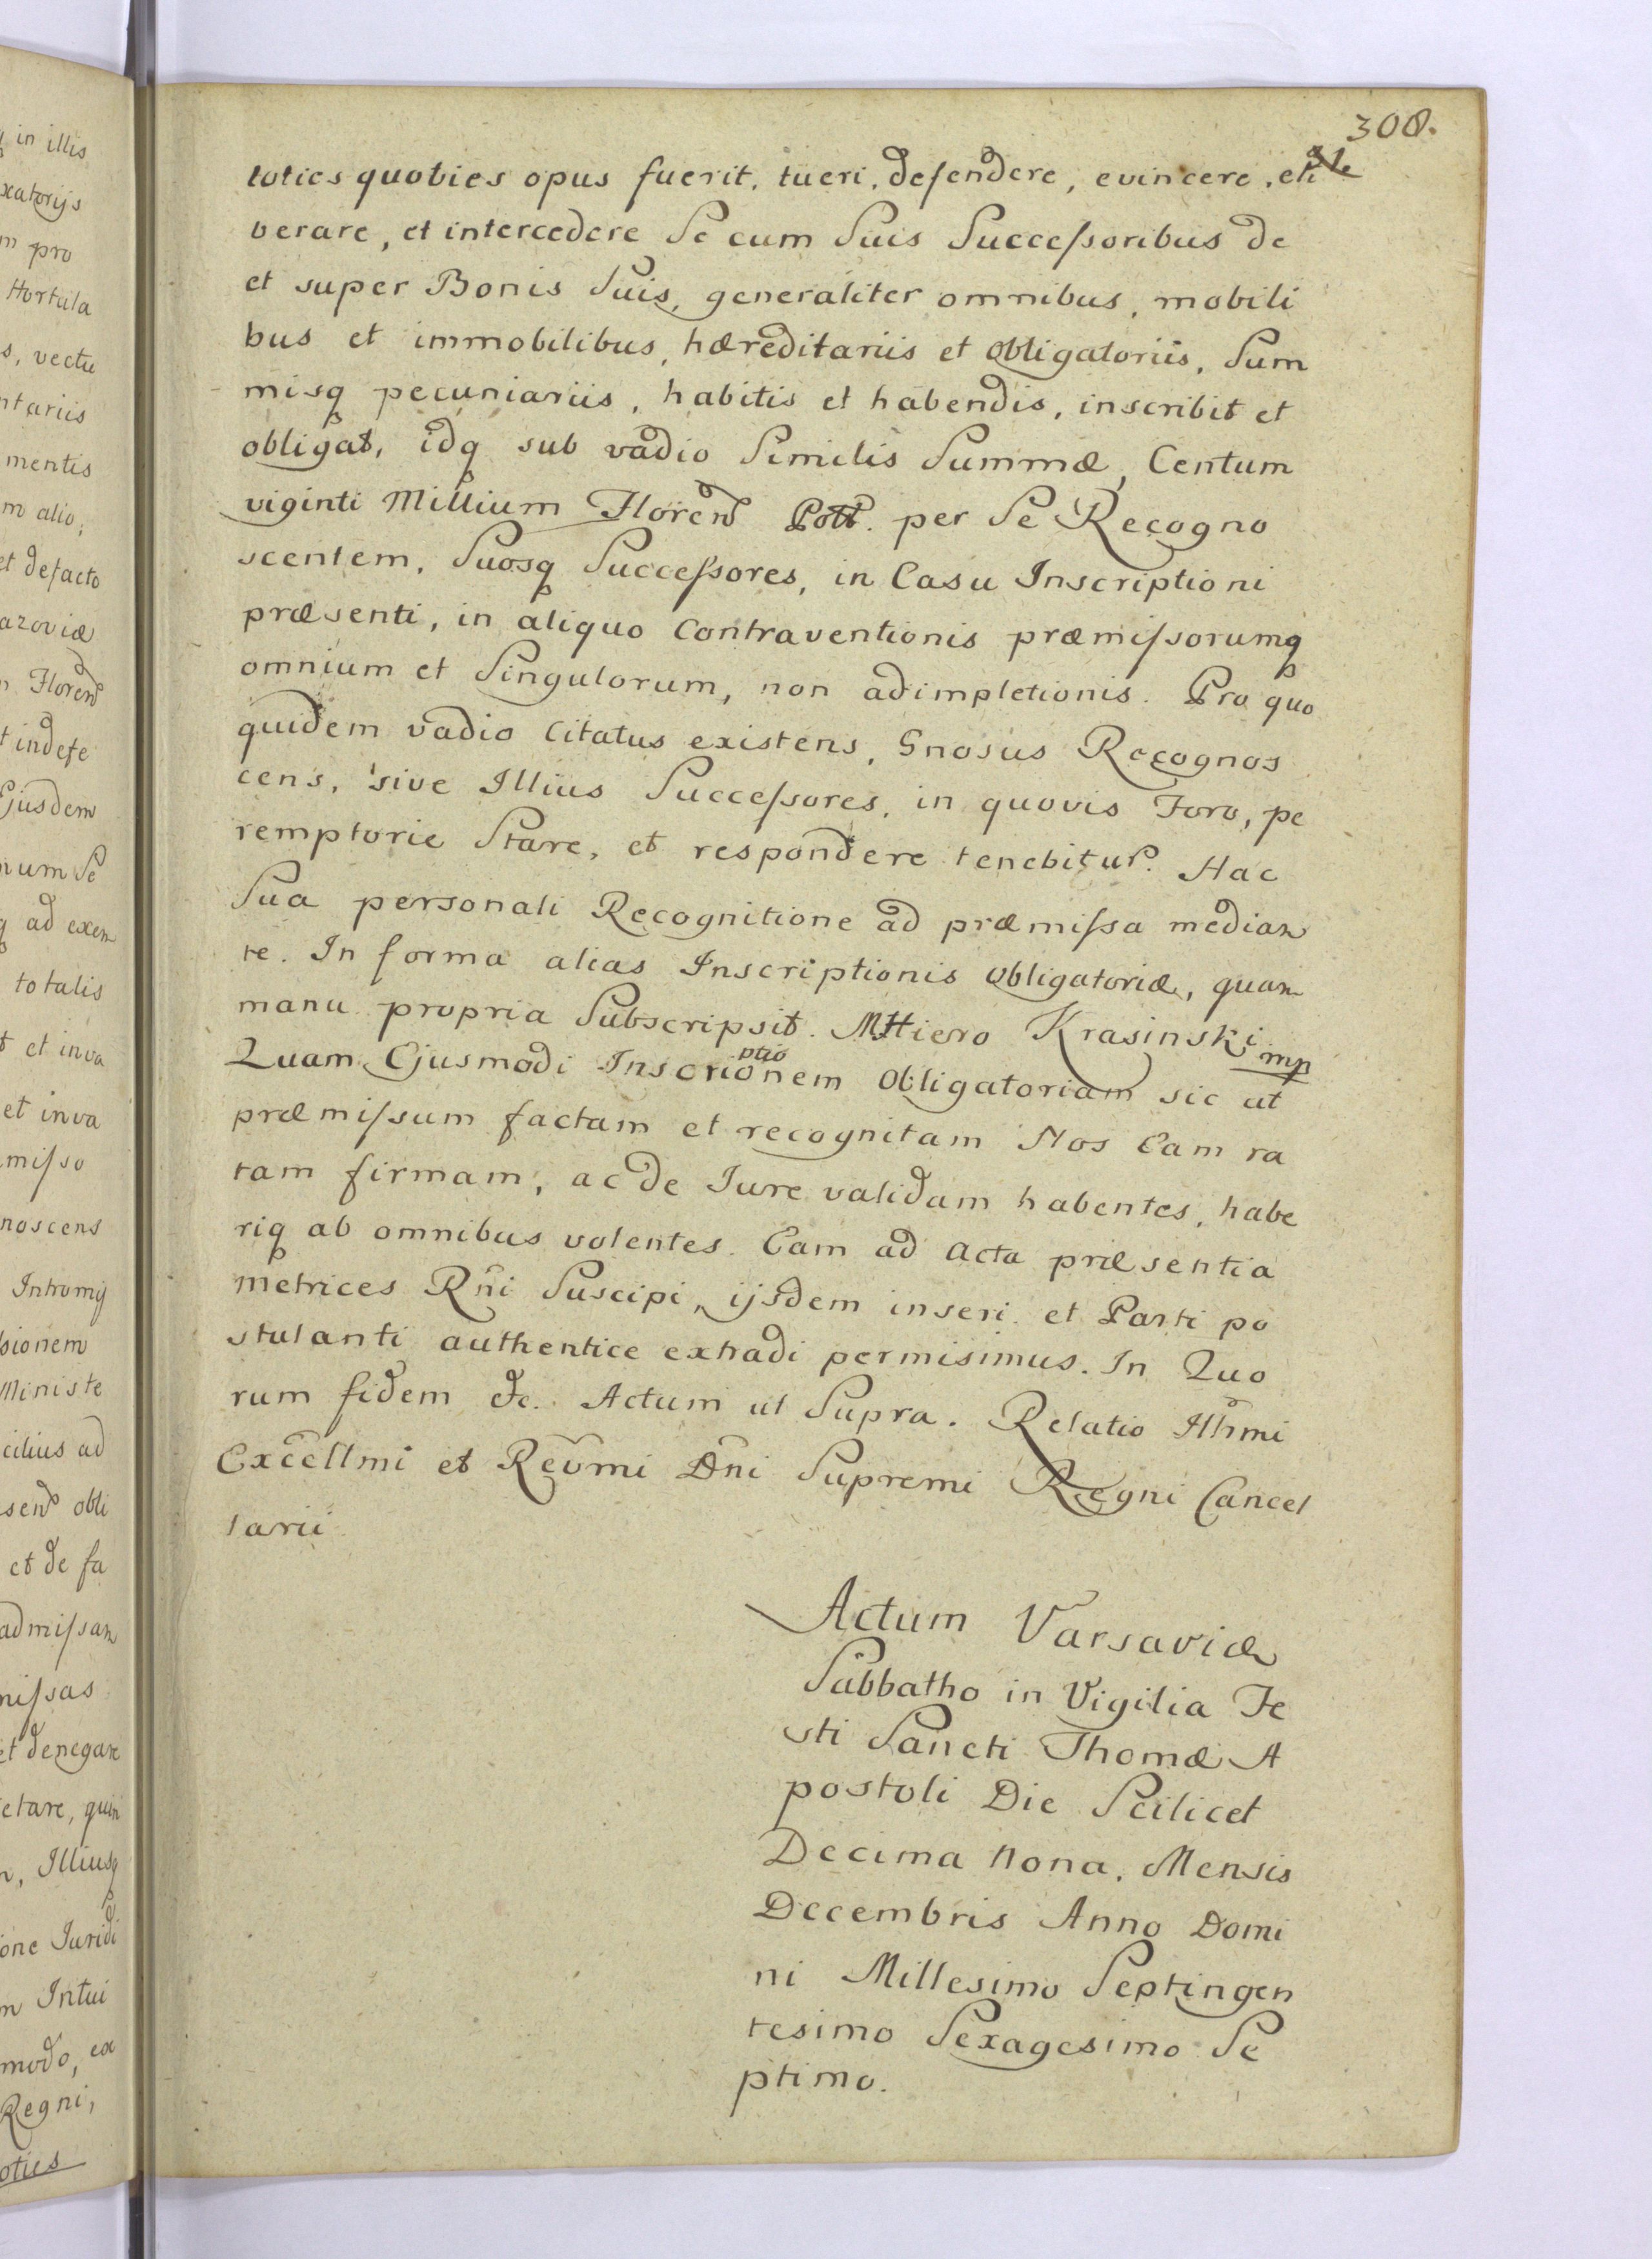 308.
toties quoties opus fuerit, tueri, defendere, evincere, eli
berare, et intercedere Se cum Suis Successoribus de
et super Bonis Suis, generaliter omnibus, mobili
bus et immobilibus, hæreditariis et obligatoriis, Sum
misq pecuniariis, habitis et habendis, inscribit et
obligat, idq sub vadio Similis Summæ, Centum
viginti Millium Floren Poll. per Se Recogno
scentem, Suosq Successores, in Casu Inscriptioni
præsenti, in aliquo Contraventionis præmissorumq
omnium et Singulorum, non adimpletionis. Pro quo
quidem vadio Citatus existens, Gnosus Recognos
cens, sive Illius Successores, in quovis Foro, pe
remptorie Stare, et respondere tenebitur. Hac
Sua personali Recognitione ad præmissa median
te. In forma alias Inscriptionis obligatoriæ, quam
manu propria Subscripsit. MHiero Krasinski mp
Quam Ejusmodi Inscriptionem Obligatoriam sic ut
præmissum factam et recognitam Nos Eam ra
tam firmam, ac de Iure validam habentes, habe
riq ab omnibus volentes. Eam ad Acta præsentia
Metrices Rñi Suscipi, ijsdem inseri et Parti po
stulanti authentice extradi permisimus. In Quo
rum fidem &c. Actum ut Supra. Relatio Illmi
Excellmi et Revmi Dni Supremi Regni Cancel
larii
Actum Varsaviæ
Sabbatho in Vigilia Fe
sti Sancti Thomæ A
postoli Die Scilicet
Decima Nona, Mensis
Decembris Anno Domi
ni Millesimo Septingen
tesimo Sexagesimo Se
ptimo.
in illis
xatorijs
pro
Hortula
s, vectu
ntariis
mentis
m alio,
et defacto
azoviæ
Floren
t indefe
Ejusdem
num Se
q ad exem
totalis
t et inva
et inva
misso
noscens
Intromi
sionem
Ministe
cilius ad
sen obli
et de fa
admissam
missas
et denegare
etare, quin
, Illiusq
one Iuridi
m Intui
modo, ex
Regni,
oties